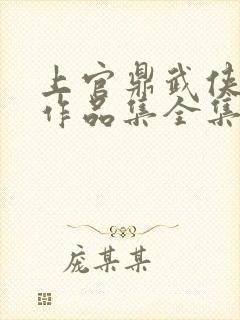 上官鼎武侠
作品集全集
庞某某